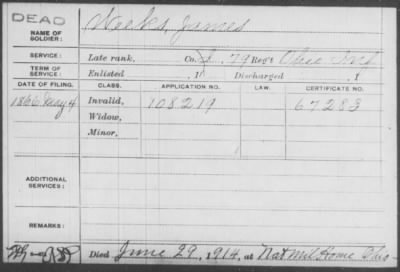 DEAD
NAME OF SOLDIER: Weeks, James
SERVICE: Late rank, Co. I, 79 Reg't Ohio Inf
TERM OF SERVICE: Enlisted , 1 Discharged , 1
DATE OF FILING. CLASS. APPLICATION NO. LAW. CERTIFICATE NO.
1866 May 4 Invalid, 108219 67283
Widow,
Minor,
ADDITIONAL SERVICES:
REMARKS:
Died June 29, 1914, at Nat Mil Home Ohio